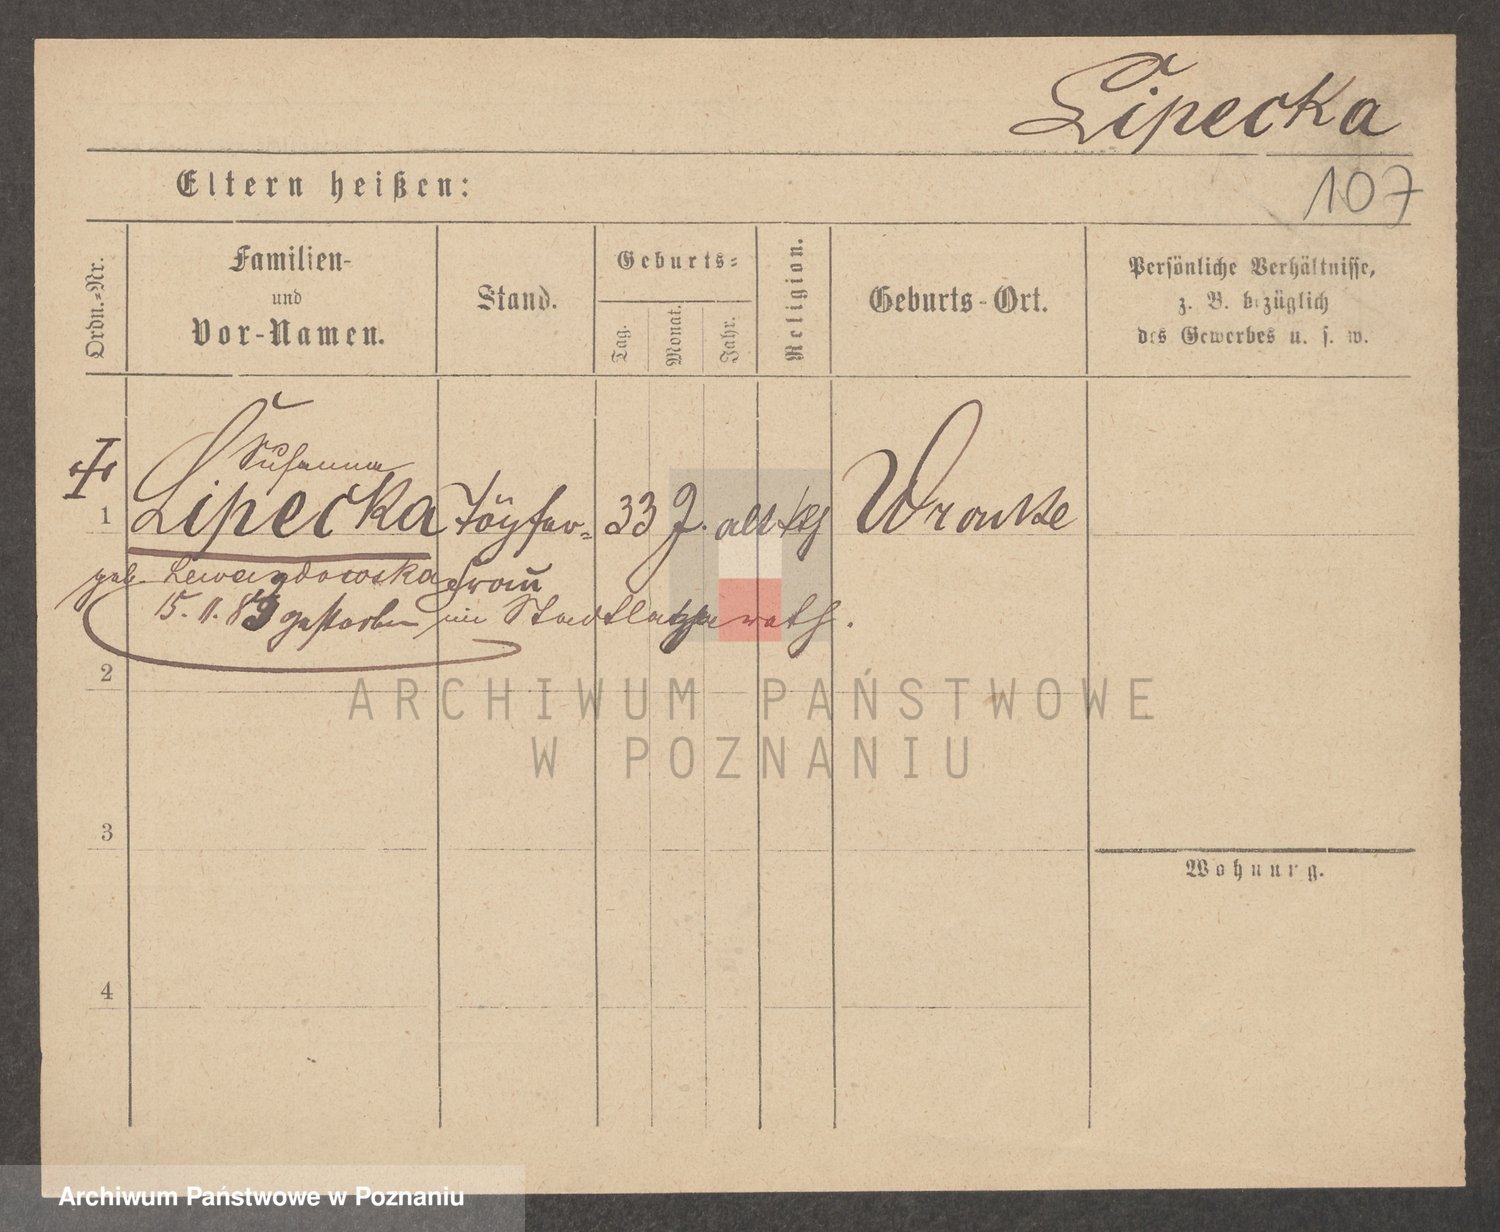 Lipecka
107
Eltern heißen:
Ordn.-Nr.
Familien-
und
Vor-Namen.
Stand.
Geburts-
Tag.
Monat.
Jahr.
Religion.
Geburts-Ort.
Persönliche Verhältnisse,
z. B. bezüglich
des Gewerbes u. s. w.
Susanna
1 Lipecka Töpfer- 33 J. alt kth Wronke
geb. Lewandowska frau
15. 11. 89 gestorben im Stadtlazareth.
2
ARCHIWUM PAŃSTWOWE
W POZNANIU
3
Wohnung.
4
Archiwum Państwowe w Poznaniu